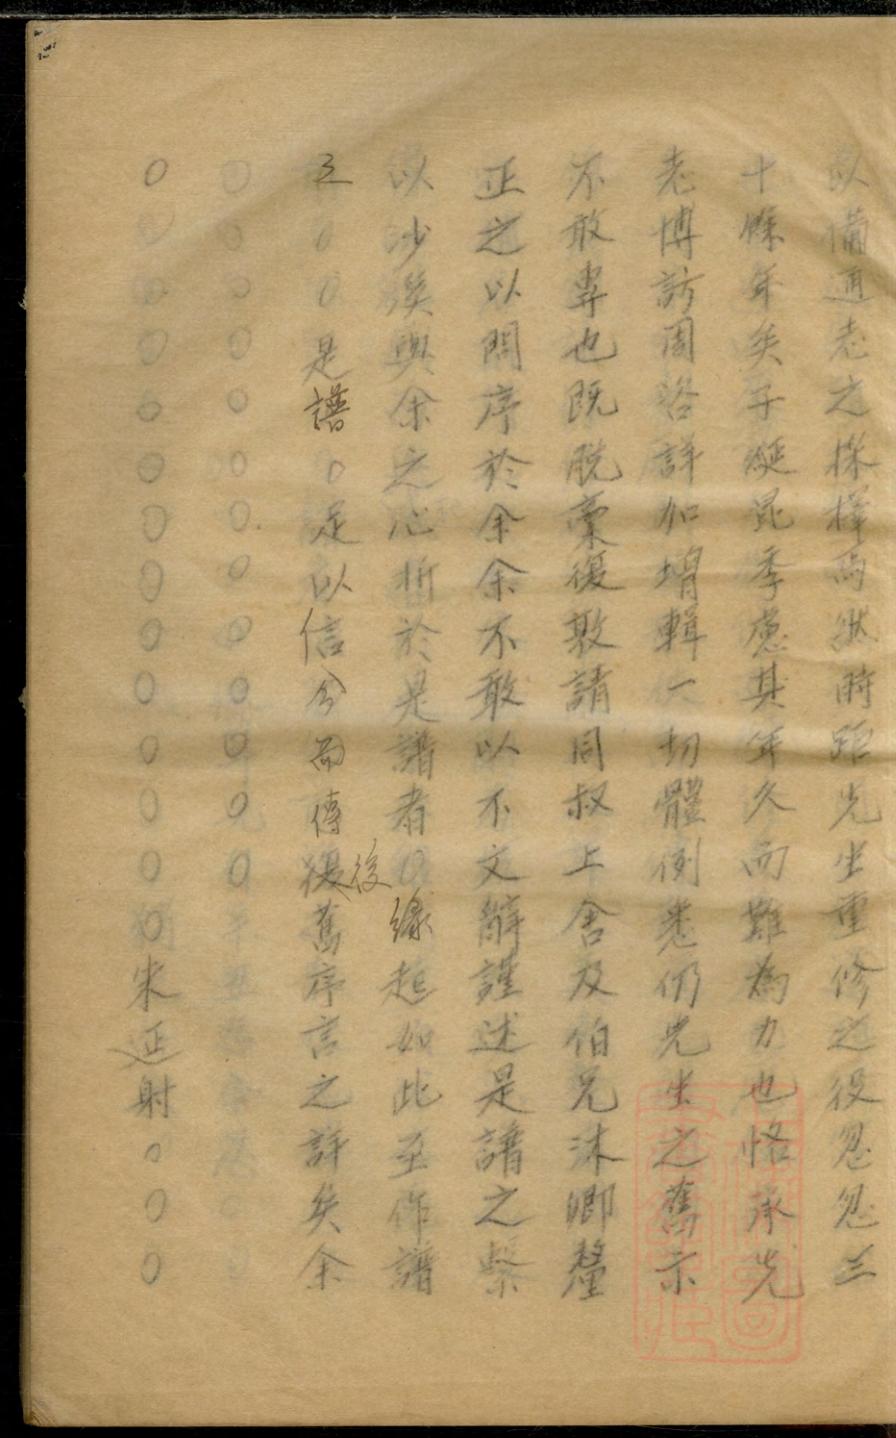 以備通志之採擇焉然時距先生重修之役忽忽三
十餘年矣子綖昆季慮其年久而難為力也恪承先
志博訪周咨詳加增輯一切體例悉仍先生之舊示
不敢專也既脫稾復敦請同叔上舍及伯兄沐卿釐
正之以問序於余余不敢以不文辭謹述是譜之繫
以沙溪與余之心折於是譜者〇緣起如此至作譜
之〇〇是譜〇足以信今而傳後舊序言之詳矣余
〇〇〇〇〇〇〇〇〇〇〇〇〇
〇〇〇〇〇〇〇〇〇〇〇〇〇〇朱延射〇〇〇